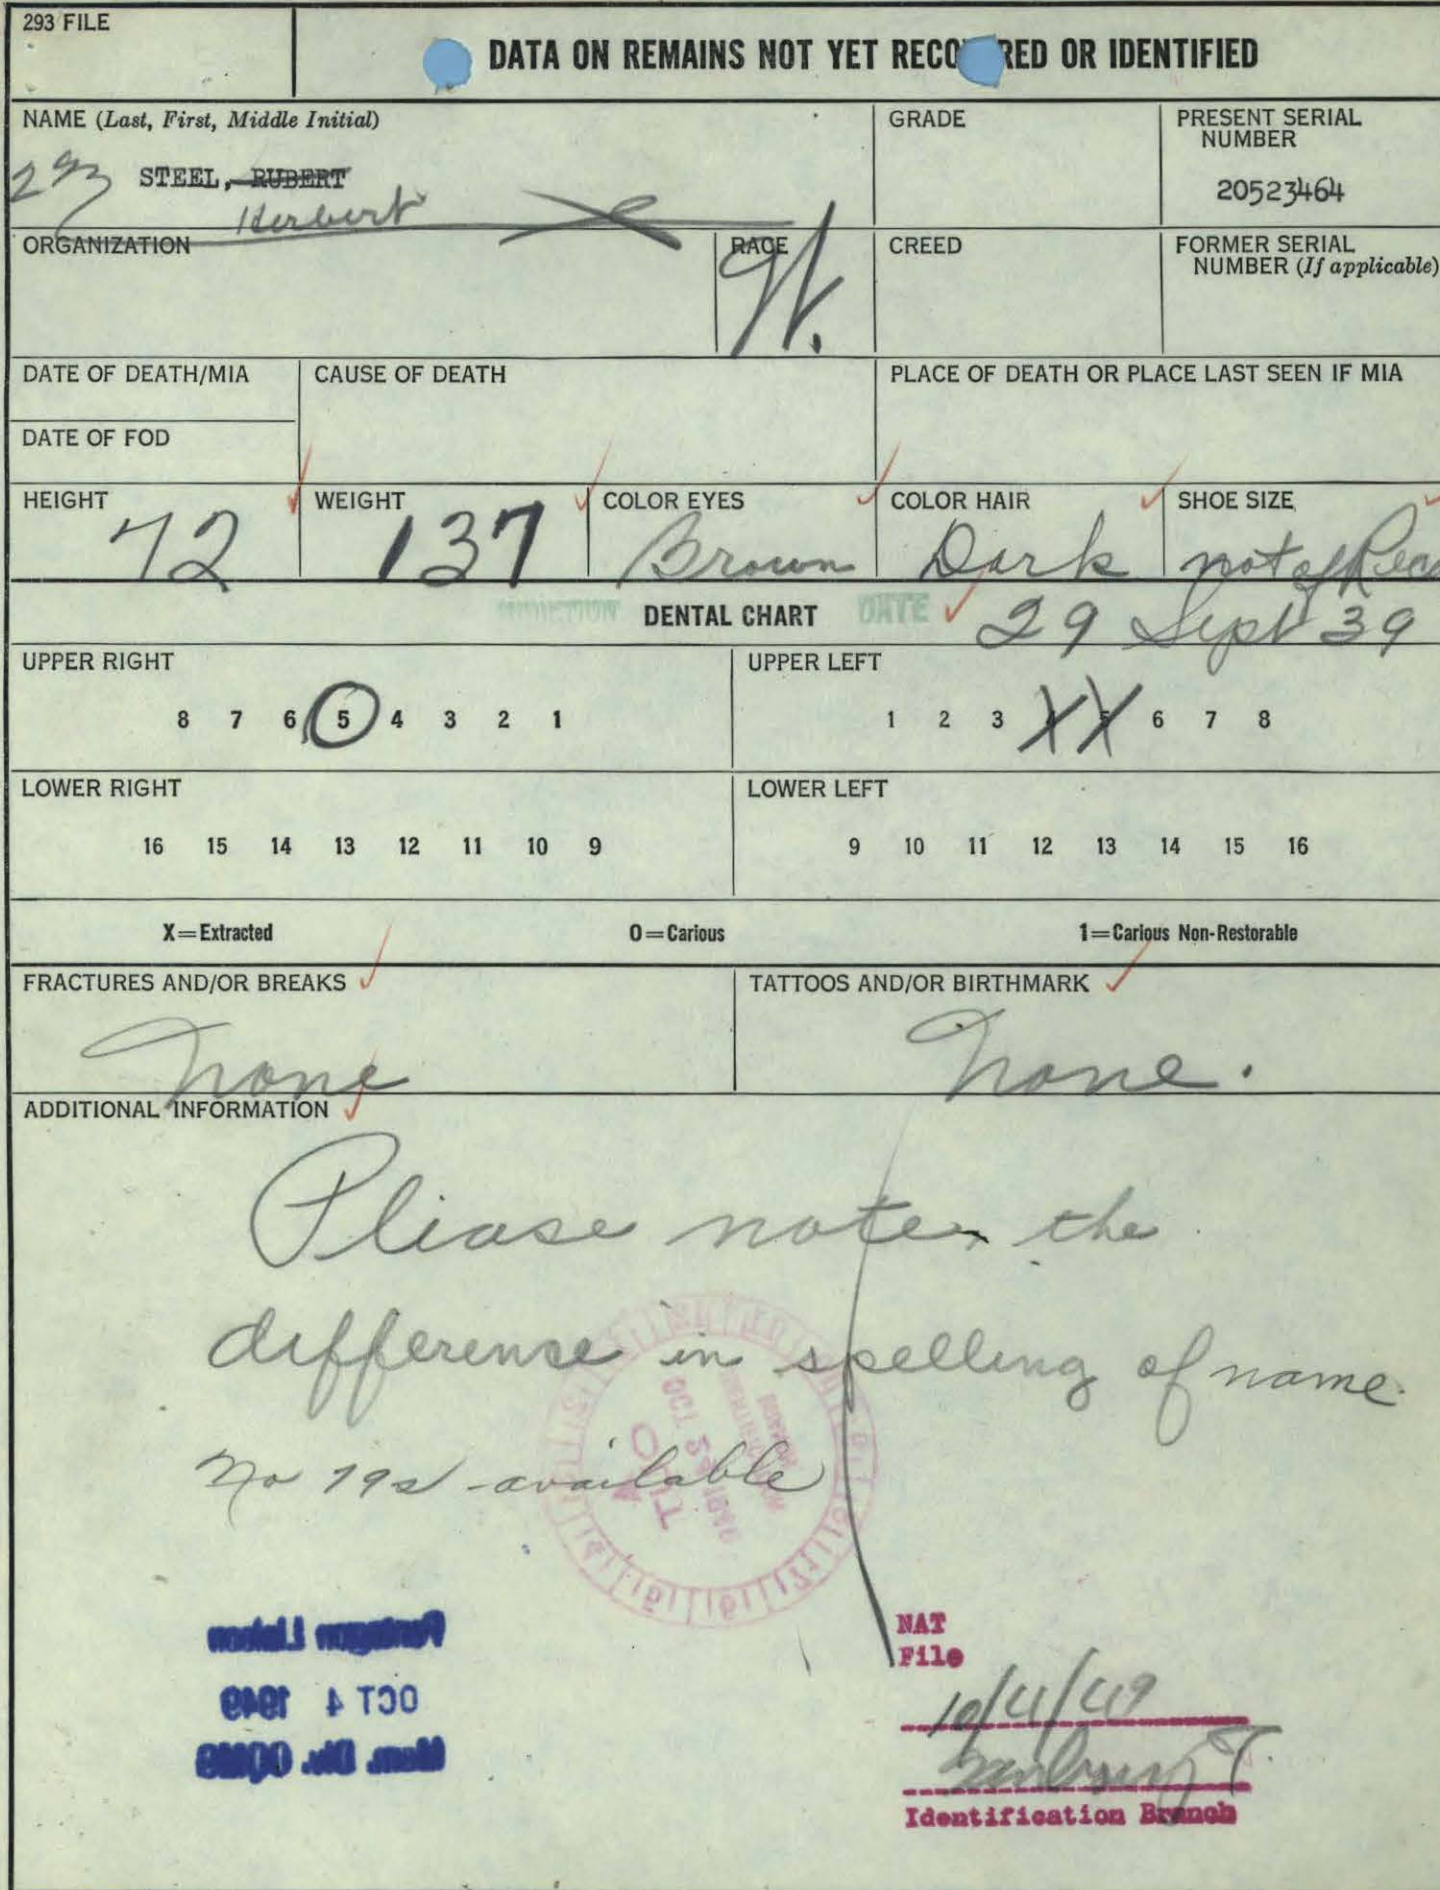 293 FILE
DATA ON REMAINS NOT YET RECOVERED OR IDENTIFIED
NAME (Last, First, Middle Initial)
293 STEEL, RUBERT
Herbert
GRADE
PRESENT SERIAL NUMBER
20523464
ORGANIZATION
RACE
W.
CREED
FORMER SERIAL NUMBER (If applicable)
DATE OF DEATH/MIA
CAUSE OF DEATH
PLACE OF DEATH OR PLACE LAST SEEN IF MIA
DATE OF FOD
HEIGHT
72
WEIGHT
137
COLOR EYES
Brown
COLOR HAIR
Dark
SHOE SIZE
not of Rec
DENTAL CHART DATE 29 Sept 39
UPPER RIGHT
8 7 6 5 4 3 2 1
UPPER LEFT
1 2 3 X X 6 7 8
LOWER RIGHT
16 15 14 13 12 11 10 9
LOWER LEFT
9 10 11 12 13 14 15 16
X=Extracted O=Carious 1=Carious Non-Restorable
FRACTURES AND/OR BREAKS
None
TATTOOS AND/OR BIRTHMARK
None.
ADDITIONAL INFORMATION
Please note the
difference in spelling of name.
No 79s available
OUT
Pentagon Liaison
OCT 4 1949
Mem. Div. OQMG
NAT
File
10/4/49
Identification Branch